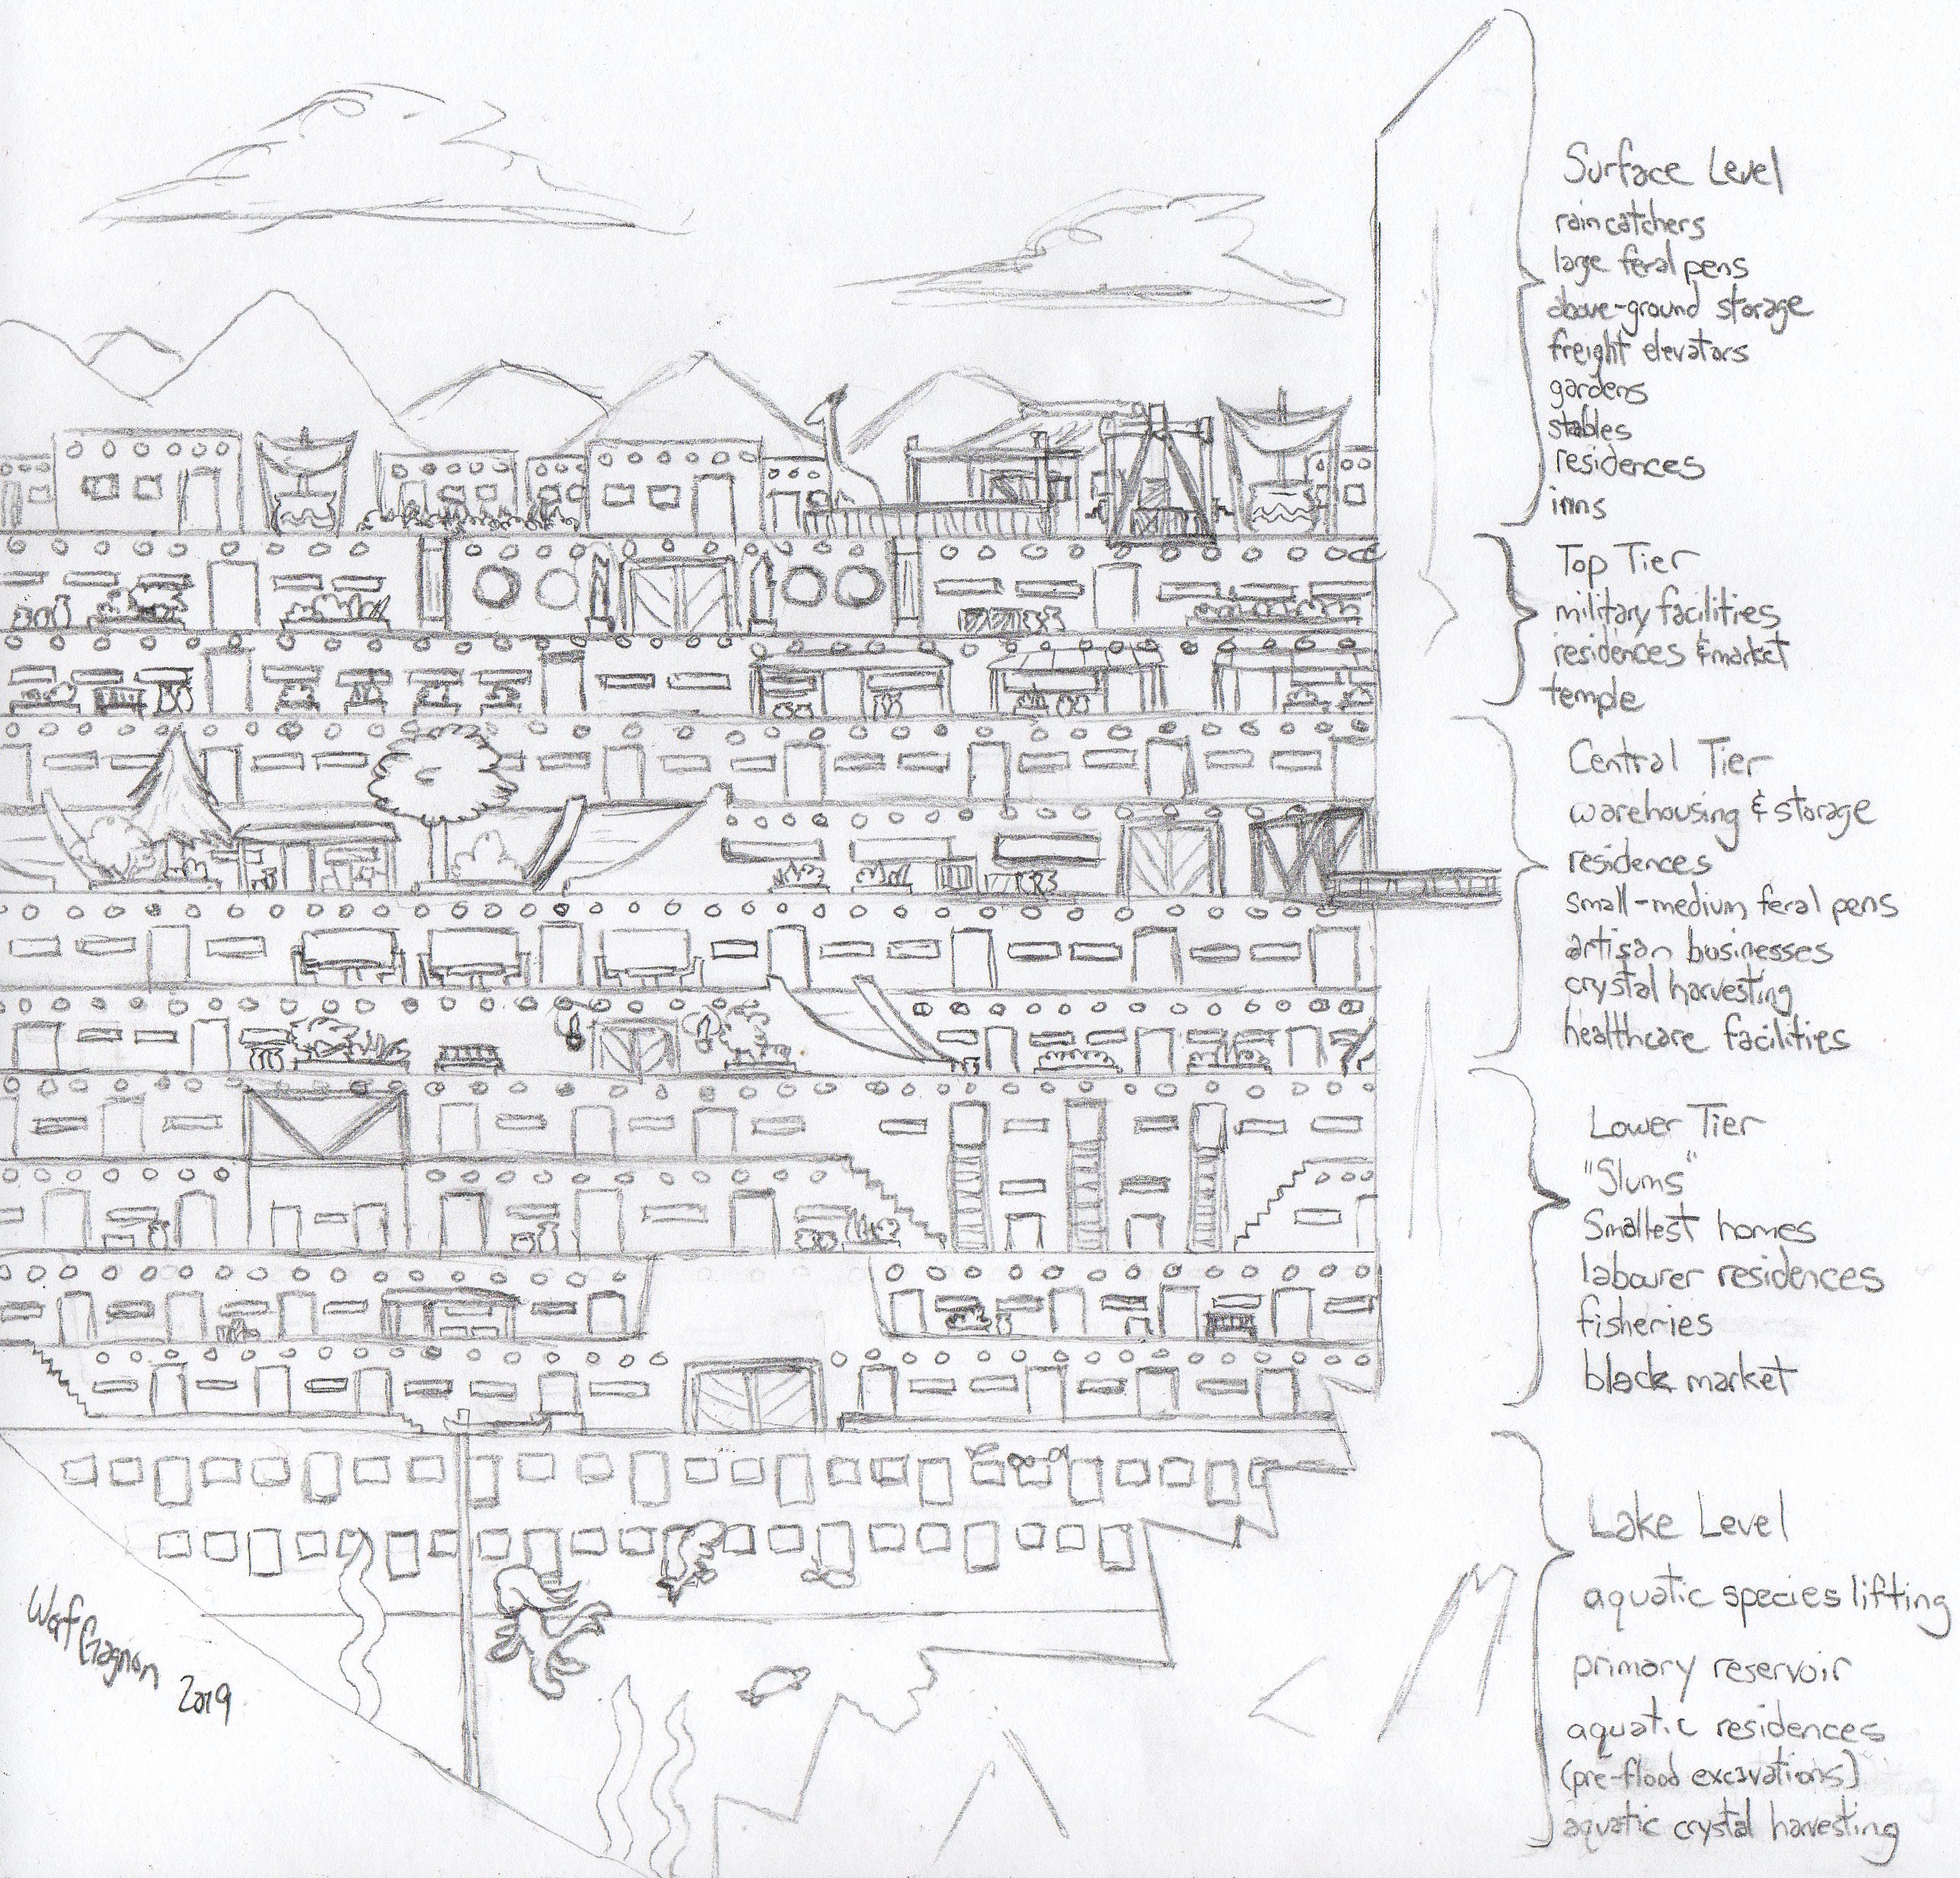 Surface Level
raincatchers
large feral pens
above-ground storage
freight elevators
gardens
stables
residences
inns
Top Tier
military facilities
residences & market
temple
Central Tier
warehousing & storage
residences
small-medium feral pens
artisan businesses
crystal harvesting
healthcare facilities
Lower Tier
"Slums"
Smallest homes
labourer residences
fisheries
black market
Lake Level
aquatic species lifting
primary reservoir
aquatic residences
(pre-flood excavations)
aquatic crystal harvesting
Gagnon
2019